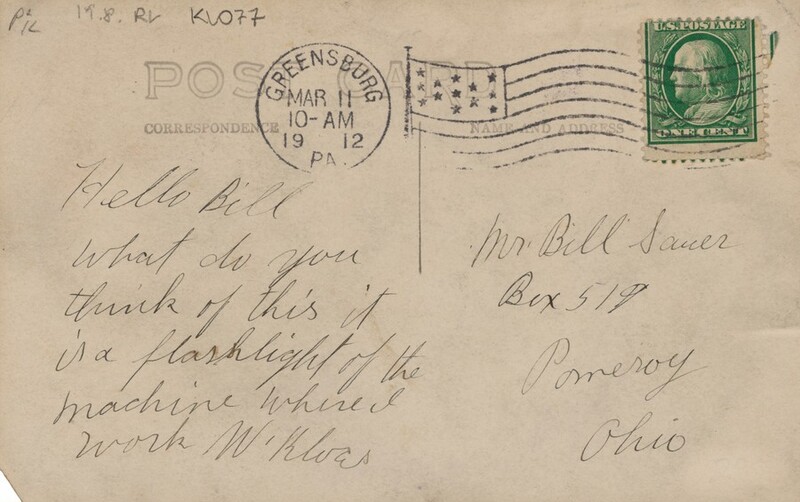 19.8. RL KLO77
U.S. POSTAGE
ONE CENT
POST CARD
GREENSBURG
MAR 11
10-AM
19 12
PA.
CORRESPONDENCE
NAME AND ADDRESS
Hello Bill
what do you
think of this it
is a flashlight of the
machine where I
work W. Kloes
Mr. Bill Sauer
Box 519
Pomeroy
Ohio